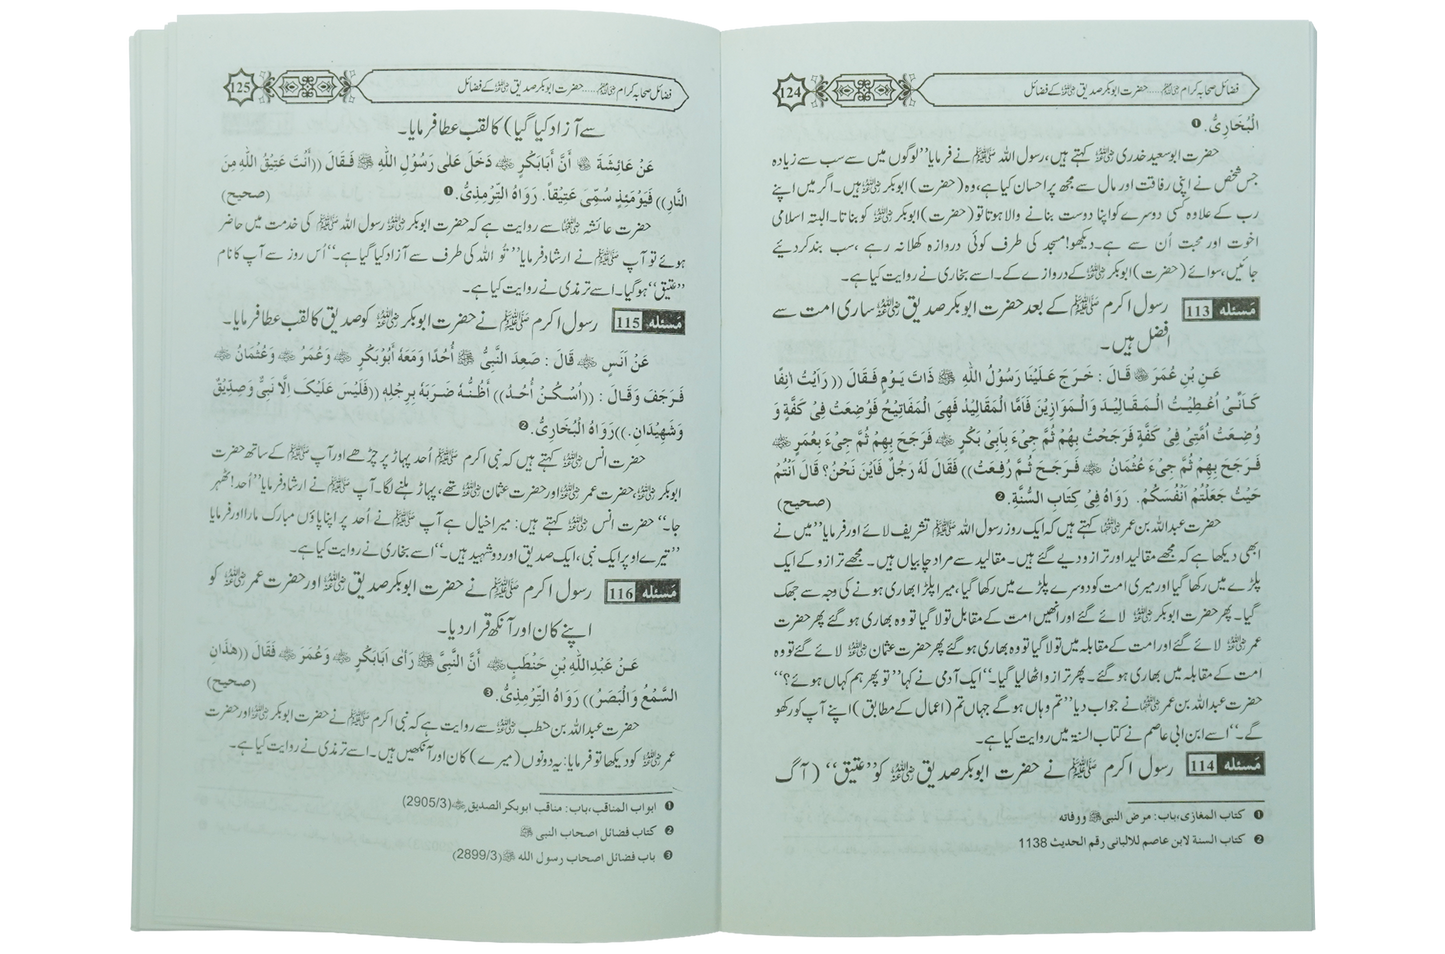 فضائل صحابہ کرام ؓ..... حضرت ابوبکر صدیق ؓ کے فضائل 124
الْبُخَارِیُّ. ❶
حضرت ابوسعید خدری ؓ کہتے ہیں، رسول اللہ ﷺ نے فرمایا ’’لوگوں میں سے سب سے زیادہ
جس شخص نے اپنی رفاقت اور مال سے مجھ پر احسان کیا ہے، وہ (حضرت) ابوبکر ؓ ہیں۔ اگر میں اپنے
رب کے علاوہ کسی دوسرے کو اپنا دوست بنانے والا ہوتا تو (حضرت) ابوبکر ؓ کو بناتا۔ البتہ اسلامی
اخوت اور محبت اُن سے ہے۔ دیکھو! مسجد کی طرف کوئی دروازہ کھلا نہ رہے، سب بند کر دیئے
جائیں، سوائے (حضرت) ابوبکر ؓ کے دروازے کے۔ اسے بخاری نے روایت کیا ہے۔
مَسئلہ 113 رسول اکرم ﷺ کے بعد حضرت ابوبکر صدیق ؓ ساری امت سے
افضل ہیں۔
عَنِ بْنِ عُمَرَ ؓ قَالَ : خَرَجَ عَلَیْنَا رَسُوْلُ اللّٰہِ ﷺ ذَاتَ یَوْمٍ فَقَالَ (( رَاَیْتُ اٰنِفًا
کَاَنِّیْ اُعْطِیْتُ الْمَقَالِیْدَ وَالْمَوَازِیْنَ فَاَمَّا الْمَقَالِیْدُ فَھِیَ الْمَفَاتِیْحُ فَوُضِعْتُ فِیْ کَفَّةٍ وَ
وُضِعَتْ اُمَّتِیْ فِیْ کَفَّةٍ فَرَجَحْتُ بِھِمْ ثُمَّ جِیْءَ بِاَبِیْ بَکْرٍ ؓ فَرَجَحَ بِھِمْ ثُمَّ جِیْءَ بِعُمَرَ ؓ
فَرَجَحَ بِھِمْ ثُمَّ جِیْءَ عُثْمَانُ ؓ فَرَجَحَ ثُمَّ رُفِعَتْ)) فَقَالَ لَهُ رَجُلٌ فَاَیْنَ نَحْنُ؟ قَالَ اَنْتُمْ
حَیْثُ جَعَلْتُمْ اَنْفُسَکُمْ. رَوَاہُ فِیْ کِتَابِ السُّنَّةِ. ❷ (صحیح)
حضرت عبداللہ بن عمر ؓ کہتے ہیں کہ ایک روز رسول اللہ ﷺ تشریف لائے اور فرمایا ’’میں نے
ابھی دیکھا ہے کہ مجھے مقالید اور ترازو دیے گئے ہیں۔ مقالید سے مراد چابیاں ہیں۔ مجھے ترازو کے ایک
پلڑے میں رکھا گیا اور میری امت کو دوسرے پلڑے میں رکھا گیا، میرا پلڑا بھاری ہونے کی وجہ سے جھک
گیا۔ پھر حضرت ابوبکر ؓ لائے گئے اور انھیں امت کے مقابل تولا گیا تو وہ بھاری ہو گئے پھر حضرت
عمر ؓ لائے گئے اور امت کے مقابلہ میں تولا گیا تو وہ بھاری ہو گئے پھر حضرت عثمان ؓ لائے گئے تو وہ
امت کے مقابلہ میں بھاری ہو گئے۔ پھر ترازو اٹھا لیا گیا۔‘‘ ایک آدمی نے کہا ’’تو پھر ہم کہاں ہوئے؟‘‘
حضرت عبداللہ بن عمر ؓ نے جواب دیا ’’تم وہاں ہو گے جہاں تم (اعمال کے مطابق) اپنے آپ کو رکھو
گے۔‘‘ اسے ابن ابی عاصم نے کتاب السنۃ میں روایت کیا ہے۔
مَسئلہ 114 رسول اکرم ﷺ نے حضرت ابوبکر صدیق ؓ کو ’’عتیق‘‘ (آگ
❶ کتاب المغازی، باب: مرض النبی ﷺ ووفاتہ
❷ کتاب السنة لابن عاصم للالبانی رقم الحدیث 1138
فضائل صحابہ کرام ؓ..... حضرت ابوبکر صدیق ؓ کے فضائل 125
سے آزاد کیا گیا) کا لقب عطا فرمایا۔
عَنْ عَائِشَةَ ؓ أَنَّ أَبَابَکْرٍ ؓ دَخَلَ عَلٰی رَسُوْلِ اللّٰہِ ﷺ فَقَالَ ((اَنْتَ عَتِیْقُ اللّٰہِ مِنَ
النَّارِ)) فَیَوْمَئِذٍ سُمِّیَ عَتِیْقاً. رَوَاہُ التِّرْمِذِیُّ. ❶ (صحیح)
حضرت عائشہ ؓ سے روایت ہے کہ حضرت ابوبکر ؓ رسول اللہ ﷺ کی خدمت میں حاضر
ہوئے تو آپ ﷺ نے ارشاد فرمایا ’’تُو اللہ کی طرف سے آزاد کیا گیا ہے۔‘‘ اُس روز سے آپ کا نام
’’عتیق‘‘ ہو گیا۔ اسے ترمذی نے روایت کیا ہے۔
مَسئلہ 115 رسول اکرم ﷺ نے حضرت ابوبکر ؓ کو صدیق کا لقب عطا فرمایا۔
عَنْ اَنَسٍ ؓ قَالَ : صَعِدَ النَّبِیُّ ﷺ اُحُدًا وَمَعَهُ اَبُوْبَکْرٍ ؓ وَعُمَرُ ؓ وَعُثْمَانُ ؓ
فَرَجَفَ وَقَالَ : ((اُسْکُنْ اُحُدُ)) أَظُنُّهُ ضَرَبَهُ بِرِجْلِهِ ((فَلَیْسَ عَلَیْکَ اِلَّا نَبِیٌّ وَصِدِّیْقٌ
وَشَھِیْدَانِ.)) رَوَاہُ الْبُخَارِیُّ. ❷
حضرت انس ؓ کہتے ہیں کہ نبی اکرم ﷺ اُحد پہاڑ پر چڑھے اور آپ کے ساتھ حضرت
ابوبکر ؓ، حضرت عمر ؓ اور حضرت عثمان ؓ تھے، پہاڑ ہلنے لگا۔ آپ ﷺ نے ارشاد فرمایا ’’اُحد! ٹھہر
جا۔‘‘ حضرت انس ؓ کہتے ہیں: میرا خیال ہے آپ ﷺ نے اُحد پر اپنا پاؤں مبارک مارا اور فرمایا
’’تیرے اوپر ایک نبی، ایک صدیق اور دو شہید ہیں۔‘‘ اسے بخاری نے روایت کیا ہے۔
مَسئلہ 116 رسول اکرم ﷺ نے حضرت ابوبکر صدیق ؓ اور حضرت عمر ؓ کو
اپنے کان اور آنکھ قرار دیا۔
عَنْ عَبْدِاللّٰہِ بْنِ حَنْطَبٍ ؓ أَنَّ النَّبِیَّ ﷺ رَاٰی اَبَابَکْرٍ ؓ وَعُمَرَ ؓ فَقَالَ ((ھٰذَانِ
السَّمْعُ وَالْبَصَرُ)) رَوَاہُ التِّرْمِذِیُّ. ❸ (صحیح)
حضرت عبداللہ بن حنطب ؓ سے روایت ہے کہ نبی اکرم ﷺ نے حضرت ابوبکر ؓ اور حضرت
عمر ؓ کو دیکھا تو فرمایا: یہ دونوں (میرے) کان اور آنکھیں ہیں۔ اسے ترمذی نے روایت کیا ہے۔
❶ ابواب المناقب، باب: مناقب ابوبکر الصدیق ؓ (2905/3)
❷ کتاب فضائل اصحاب النبی ﷺ
❸ باب فضائل اصحاب رسول الله ﷺ (2899/3)